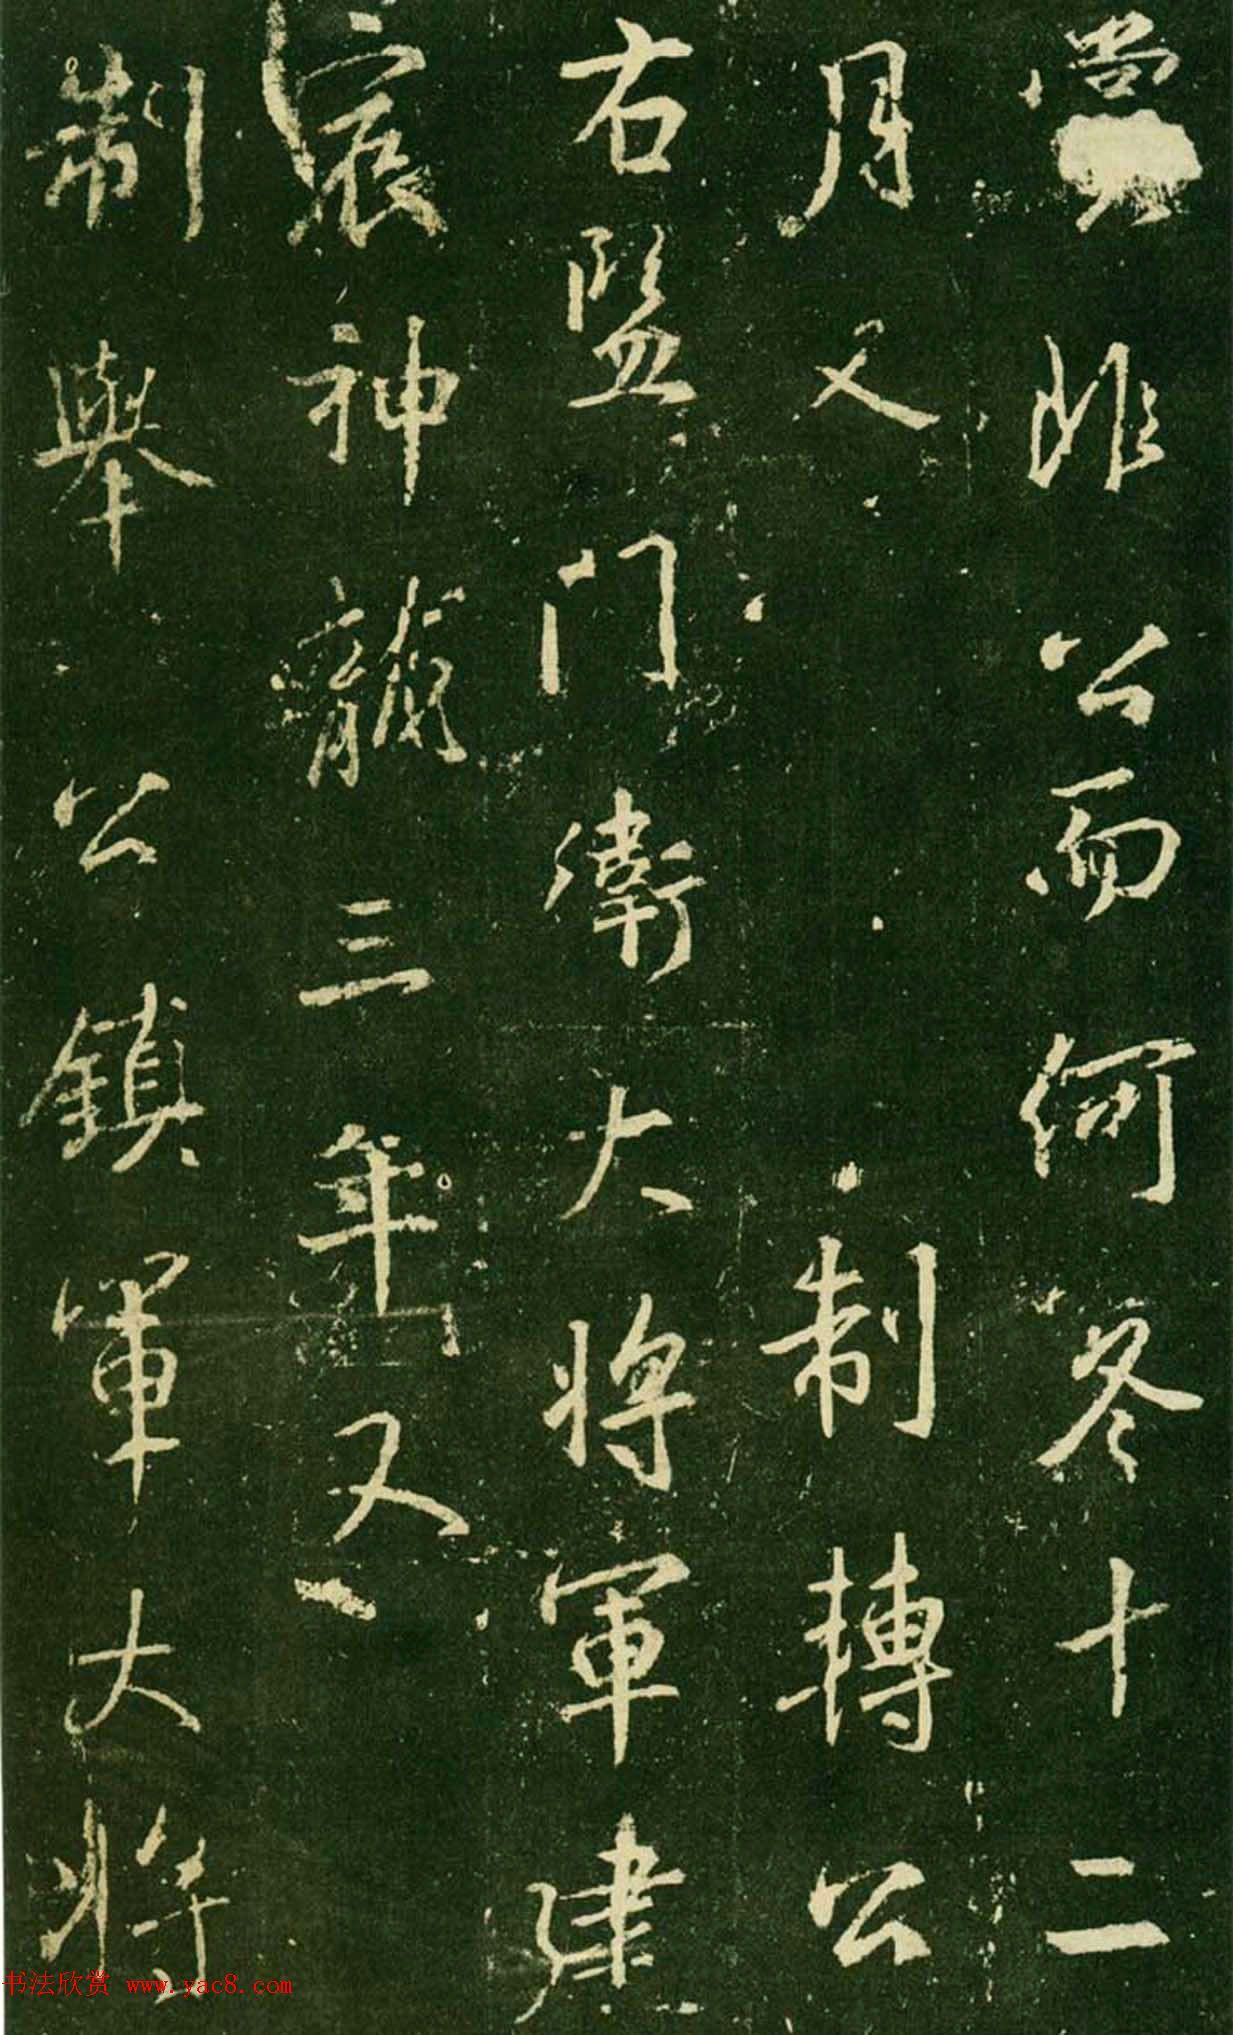 賞非公而何冬十二
月又制轉公
右監門衛大將軍建
宸神龍三年又
制舉公鎮軍大將
书法欣赏 www.yac8.com